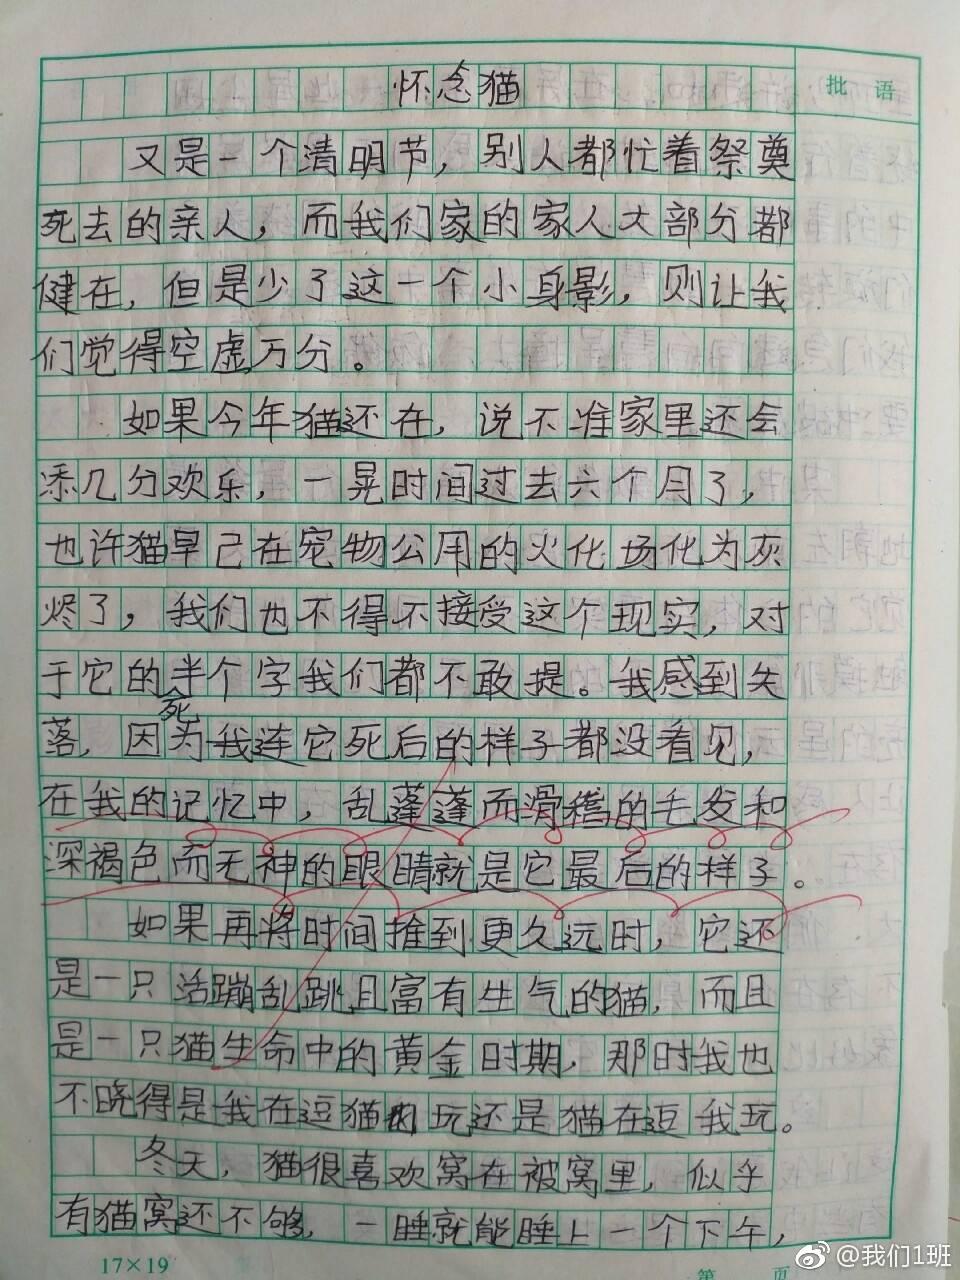 批语
怀念猫
又是一个清明节，别人都忙着祭奠
死去的亲人，而我们家的家人大部分都
健在，但是少了这一个小身影，则让我
们觉得空虚万分。
如果今年猫还在，说不准家里还会
添几分欢乐，一晃时间过去六个月了，
也许猫早已在宠物公用的火化场化为灰
烬了，我们也不得不接受这个现实，对
于它的半个字我们都不敢提。我感到失
死
落，因为我连它死后的样子都没看见，
在我的记忆中，乱蓬蓬而滑稽的毛发和
深褐色而无神的眼睛就是它最后的样子。
如果再将时间推到更久远时，它还
是一只活蹦乱跳且富有生气的猫，而且
是一只猫生命中的黄金时期，那时我也
不晓得是我在逗猫玩还是猫在逗我玩。
冬天，猫很喜欢窝在被窝里，似乎
有猫窝还不够，一睡就能睡上一个下午，
17×19
第 页
@我们1班